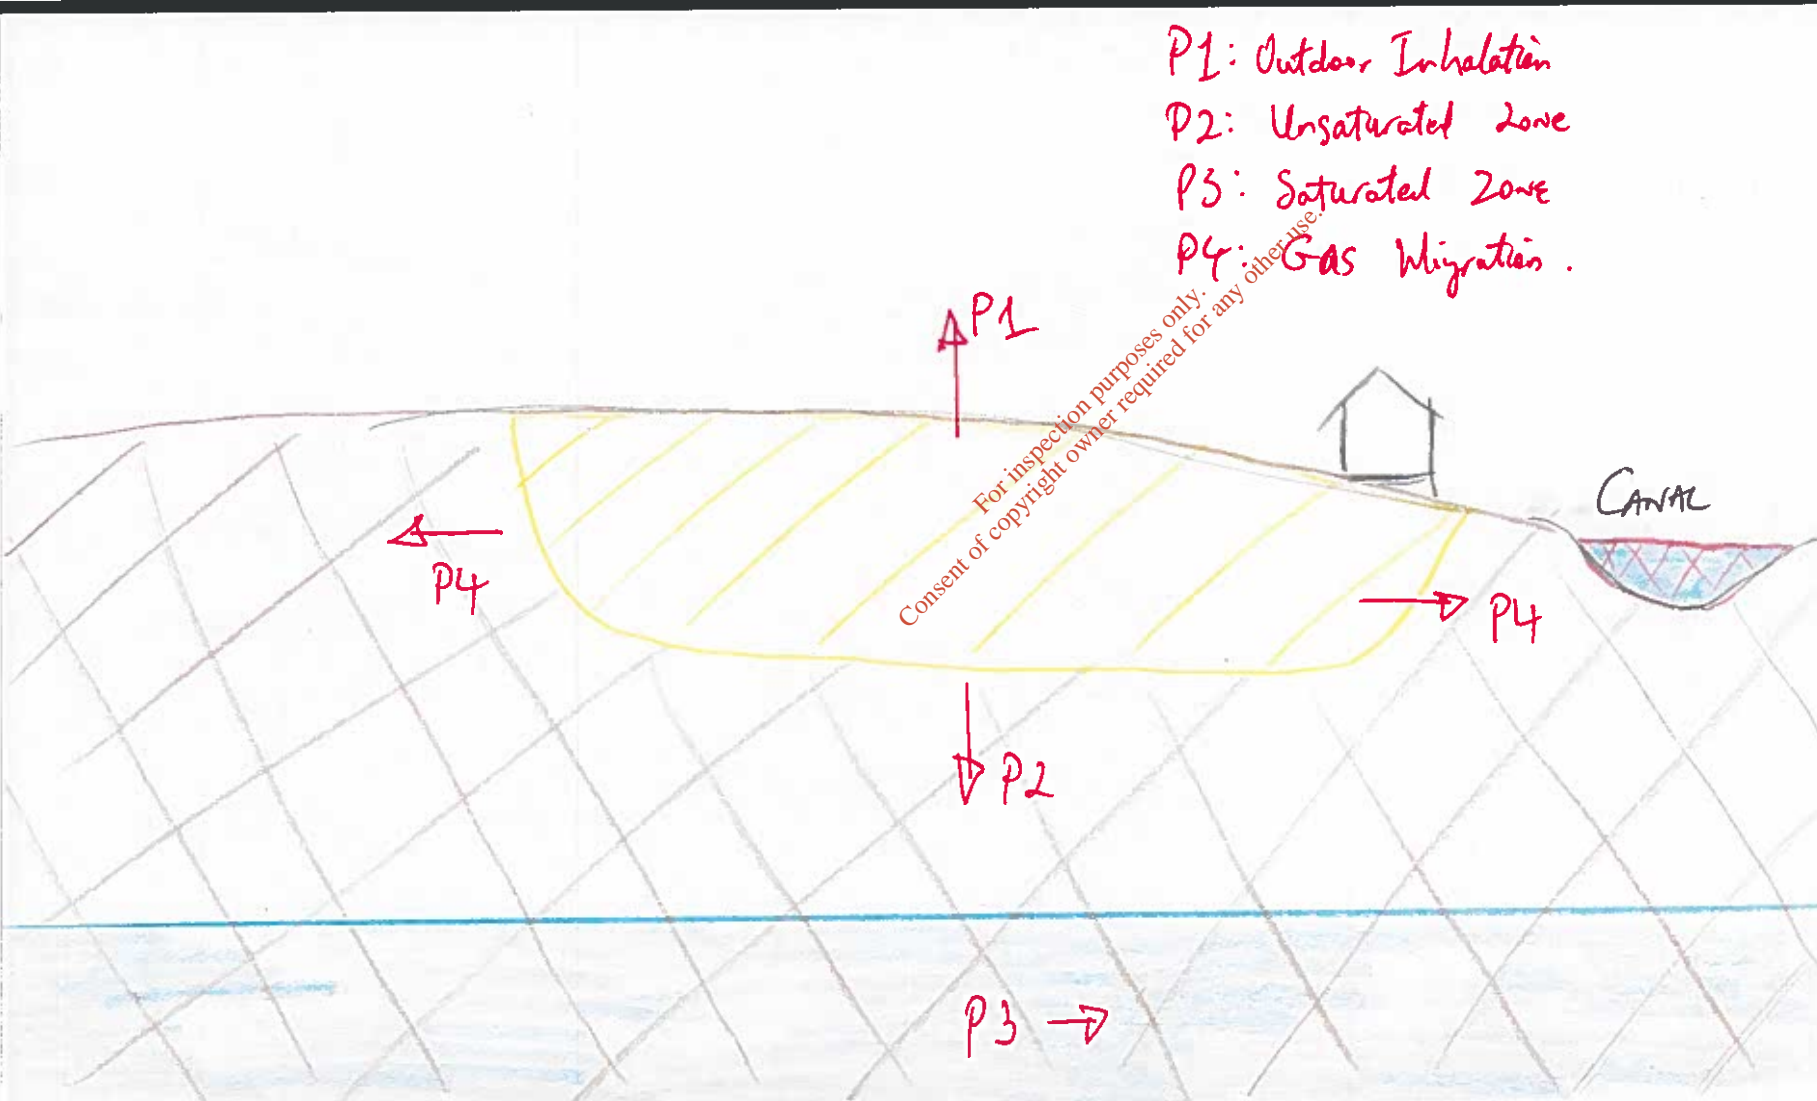 P1: Outdoor Inhalation
P2: Unsaturated Zone
P3: Saturated Zone
P4: Gas Migration.
For inspection purposes only.
Consent of copyright owner required for any other use.
P1
CANAL
P4
P4
P2
P3